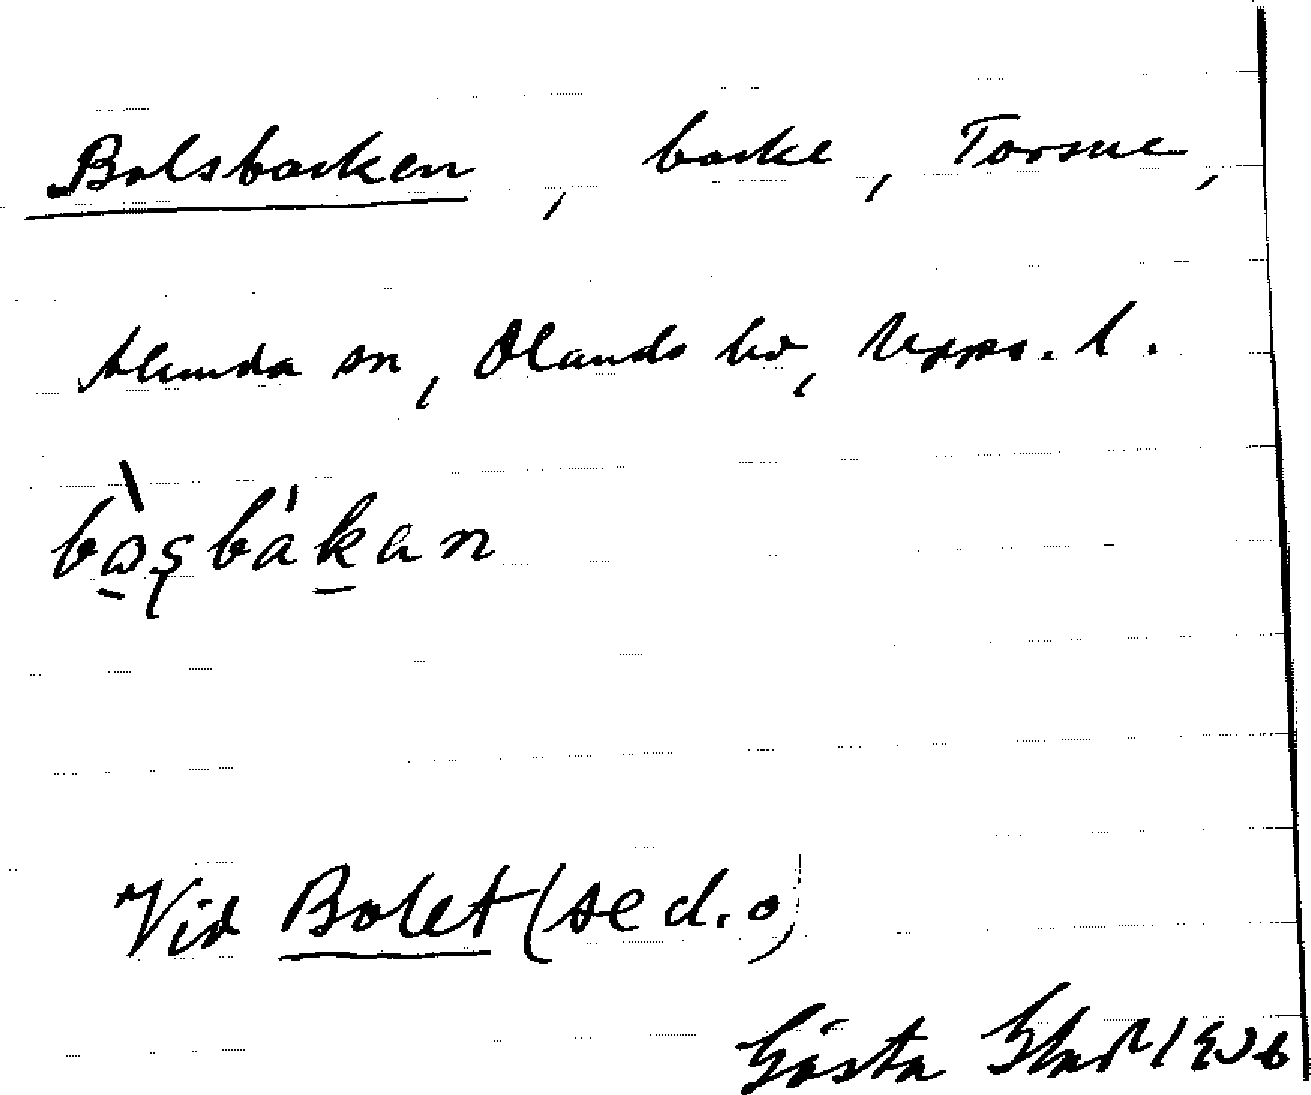 Bolsbacken, backe, Torsne,
Alunda sn, Olands hd, Upps. l.
bo̠ʂbák̠an
Vid Bolet (se d.o)
Gösta